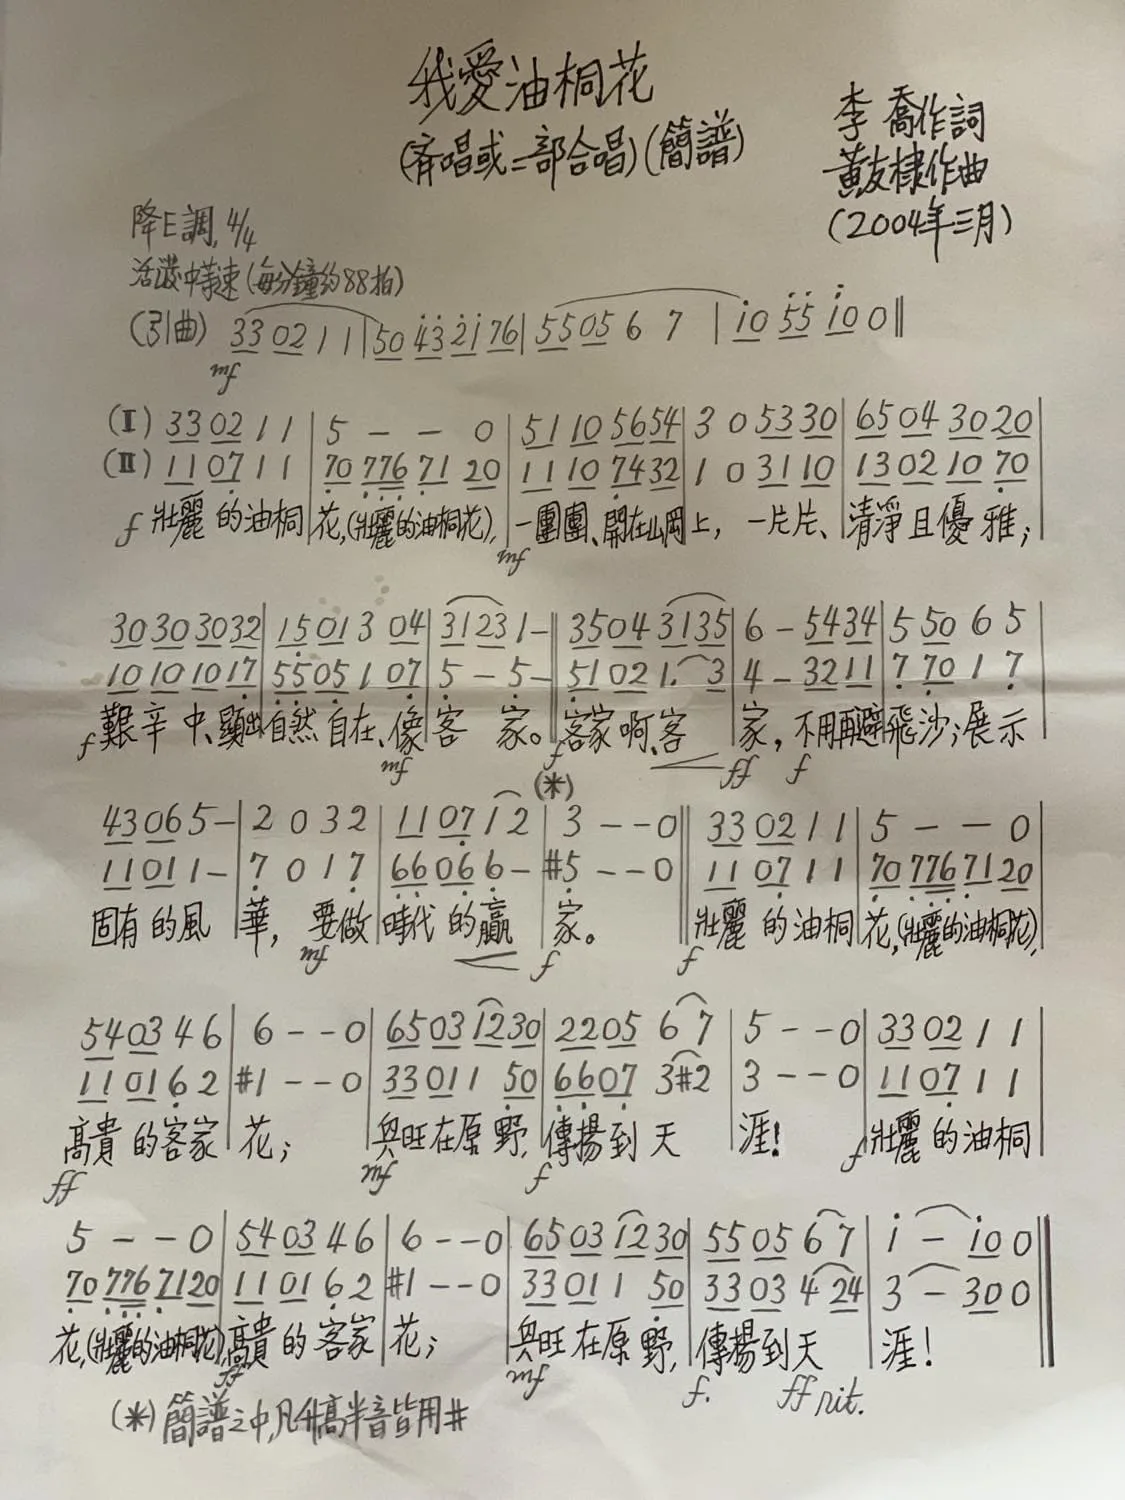 我愛油桐花
(齊唱或二部合唱)(簡譜)
李喬作詞
黃友棣作曲
(2004年三月)
降E調, 4/4
活潑中等速(每分鐘約88拍)
(引曲) 33 02 1 1 | 50 43 21 76 | 55 05 6 7 | 10 55 10 0 ‖
mf
(I) 33 02 1 1 | 5 - - 0 | 51 10 56 54 | 3 0 53 30 | 65 04 30 20 |
(II) 11 07 1 1 | 70 776 71 20 | 11 10 74 32 | 1 0 31 10 | 13 02 10 70 |
f 壯麗的油桐 花,(壯麗的油桐花), mf 一團團、開在山岡上, 一片片、清淨且優雅;
30 30 30 32 | 15 01 3 04 | 3123 1 - ‖ 35 04 3135 | 6 - 54 34 | 5 50 6 5 |
10 10 10 17 | 55 05 1 07 | 5 - 5 - ‖ 51 02 1. 3 | 4 - 32 11 | 7 70 1 7 |
f 艱辛中、顯出自然自在、mf 像客家。 f 客家啊、客家, ff f 不用再避飛沙;展示
(*)
43 06 5 - | 2 0 3 2 | 11 07 1 2 | 3 - - 0 ‖ 33 02 1 1 | 5 - - 0 |
11 01 1 - | 7 0 1 7 | 66 06 6 - | #5 - - 0 ‖ 11 07 1 1 | 70 776 71 20 |
固有的風華, mf 要做時代的贏 f 家。 f 壯麗的油桐花,(壯麗的油桐花),
54 03 4 6 | 6 - - 0 | 65 03 12 30 | 22 05 6 7 | 5 - - 0 | 33 02 1 1 |
11 01 6 2 | #1 - - 0 | 33 01 1 50 | 66 07 3 #2 | 3 - - 0 | 11 07 1 1 |
ff 高貴的客家花; mf 興旺在原野, f 傳揚到天涯! f 壯麗的油桐
5 - - 0 | 54 03 4 6 | 6 - - 0 | 65 03 12 30 | 55 05 6 7 | 1 - 10 0 ‖
70 776 71 20 | 11 01 6 2 | #1 - - 0 | 33 01 1 50 | 33 03 4 24 | 3 - 30 0 ‖
花,(壯麗的油桐花), ff 高貴的客家花; mf 興旺在原野, f. 傳揚到天涯! ff rit.
(*) 簡譜之中,凡升高半音皆用#